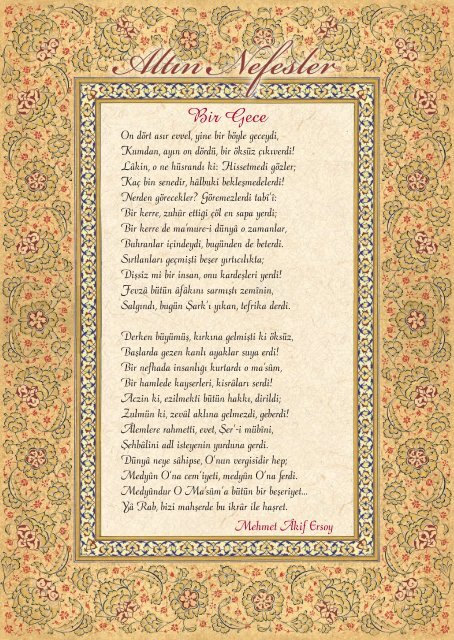 Altın Nefesler
Bir Gece
On dört asır evvel, yine bir böyle geceydi,
Kumdan, ayın on dördü, bir öksüz çıkıverdi!
Lâkin, o ne hüsrandı ki: Hissetmedi gözler;
Kaç bin senedir, hâlbuki bekleşmedelerdi!
Nerden görecekler? Göremezlerdi tabi'i:
Bir kerre, zuhûr ettigi çöl en sapa yerdi;
Bir kerre de ma'mure-i dünyâ o zamanlar,
Buhranlar içindeydi, bugünden de beterdi.
Sırtlanları geçmişti beşer yırtıcılıkta;
Dişsiz mi bir insan, onu kardeşleri yerdi!
Fevzâ bütün âfâkını sarmıştı zemînin,
Salgındı, bugün Şark'ı yıkan, tefrika derdi.
Derken büyümüş, kırkına gelmişti ki öksüz,
Başlarda gezen kanlı ayaklar suya erdi!
Bir nefhada insanlığı kurtardı o ma'sûm,
Bir hamlede kayserleri, kisrâları serdi!
Aczin ki, ezilmekti bütün hakkı, dirildi;
Zulmün ki, zevâl aklına gelmezdi, geberdi!
Âlemlere rahmetti, evet, Şer'-i mübîni,
Şehbâlini adl isteyenin yurduna gerdi.
Dünyâ neye sâhipse, O'nun vergisidir hep;
Medyûn O'na cem'iyeti, medyûn O'na ferdi.
Medyûndur O Ma'sûm'a bütün bir beşeriyet...
Yâ Rab, bizi mahşerde bu ikrâr ile haşret.
Mehmet Âkif Ersoy